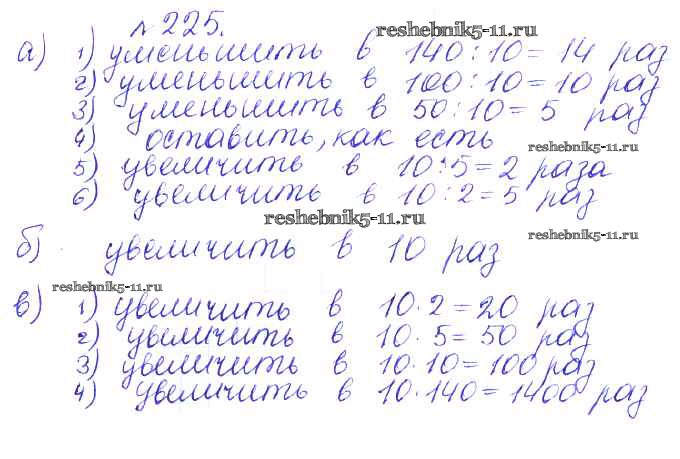 № 225.
reshebnik5-11.ru
а) 1) уменьшить в 140 : 10 = 14 раз
2) уменьшить в 100 : 10 = 10 раз
3) уменьшить в 50 : 10 = 5 раз
4) оставить, как есть
reshebnik5-11.ru
5) увеличить в 10 : 5 = 2 раза
6) увеличить в 10 : 2 = 5 раз
reshebnik5-11.ru
reshebnik5-11.ru
б) увеличить в 10 раз
reshebnik5-11.ru
в) 1) увеличить в 10 · 2 = 20 раз
2) увеличить в 10 · 5 = 50 раз
3) увеличить в 10 · 10 = 100 раз
4) увеличить в 10 · 140 = 1400 раз